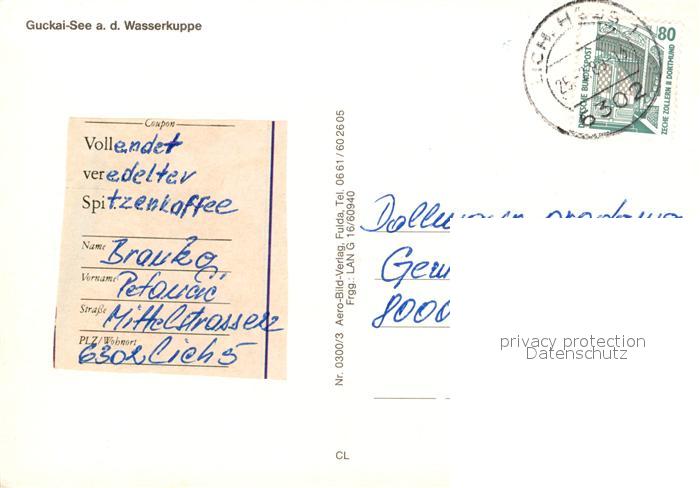 Guckai-See a. d. Wasserkuppe
80
DEUTSCHE BUNDESPOST
ZECHE ZOLLERN II DORTMUND
LICH, HESS 1
6302
Coupon
Vollendet
veredelter
Spitzenkaffee
Name Branka
Vorname
Straße Mittelstrasse 22
PLZ/Wohnort
6302 Lich 5
Nr. 0300/3 Aero-Bild-Verlag, Fulda, Tel. 0661/602605
Frgg.: LAN G 16/60940
8000
privacy protection
Datenschutz
CL